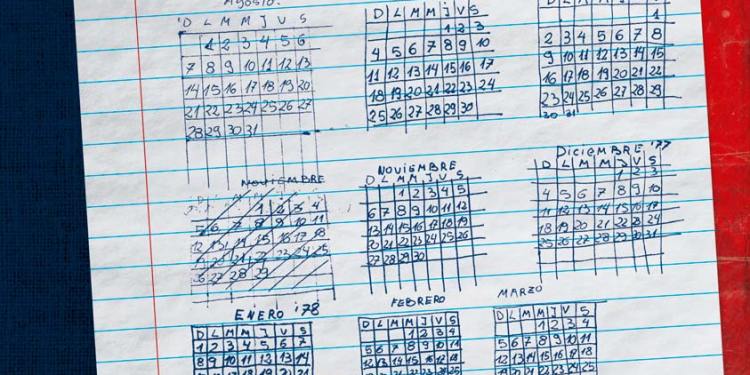 Agosto.
D L M M J V S
1 2 3 4 5 6
7 8 9 10 11 12 13
14 15 16 17 18 19 20
21 22 23 24 25 26 27
28 29 30 31
D L M M J V S
1 2 3
4 5 6 7 8 9 10
11 12 13 14 15 16 17
18 19 20 21 22 23 24
25 26 27 28 29 30
D L M M J V S
1
2 3 4 5 6 7 8
9 10 11 12 13 14 15
16 17 18 19 20 21 22
23 24 25 26 27 28 29
30 31
NOVIEMBRE
1 2 3 4
5 6 7 8 9 10 11
12 13 14 15 16 17 18
20 21 22 23 24 25
26 27 28 29
NOVIEMBRE
D L M M J V S
1 2 3 4 5
6 7 8 9 10 11 12
13 14 15 16 17 18 19
20 21 22 23 24 25 26
27 28 29 30
DICIEMBRE '77
D L M M J V S
1 2 3
4 5 6 7 8 9 10
11 12 13 14 15 16 17
18 19 20 21 22 23 24
25 26 27 28 29 30 31
ENERO '78
D L M M J V S
1 2 3 4 5 6 7
8 9 10 11 12 13 14
FEBRERO
D L M M J V S
1 2 3 4
5 6 7 8 9 10 11
12 13 14 15 16 17 18
MARZO
D L M M J V S
1 2 3 4
5 6 7 8 9 10 11
12 13 14 15 16 17 18
19 20 21 22 23 24 25